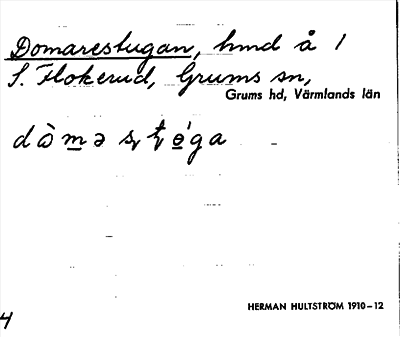 Domarestugan, hmd å 1
S. Flokerud, Grums sn,
Grums hd, Värmlands län
dò̱m̱ə ʂʈɵ́ga
HERMAN HULTSTRÖM 1910–12
4